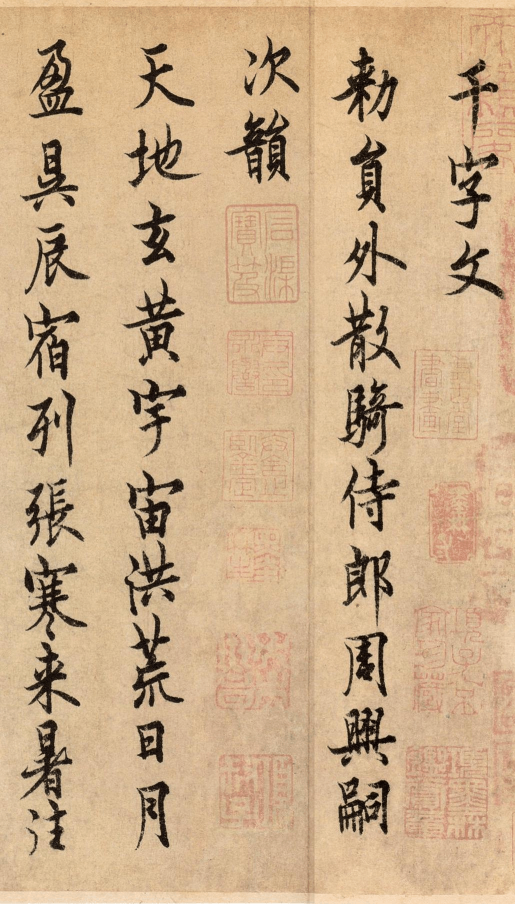 千字文
勑貟外散騎侍郎周興嗣
次韻
天地玄黃宇宙洪荒日月
盈昃辰宿列張寒来暑往